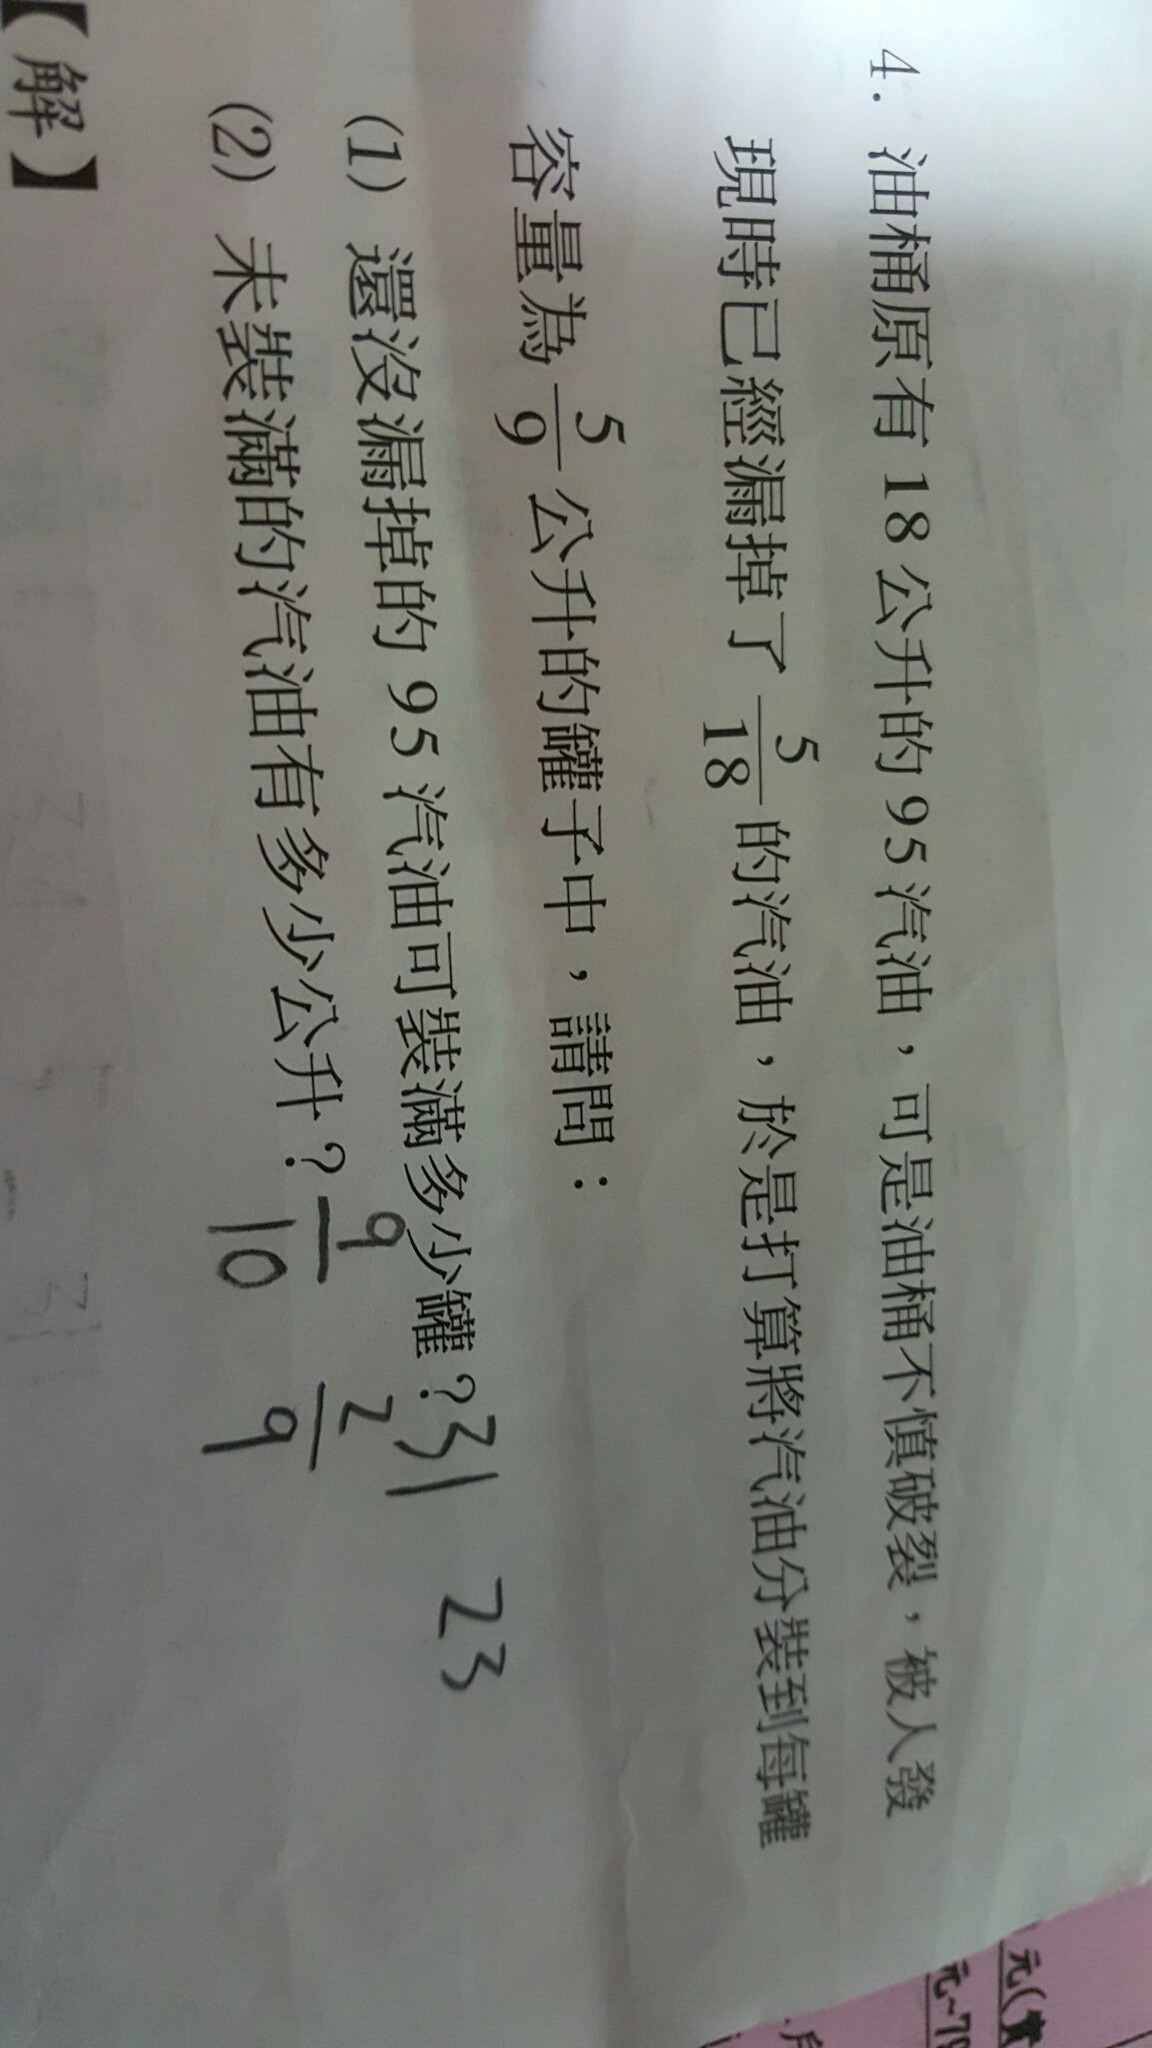 4. 油桶原有 18 公升的 95 汽油，可是油桶不慎破裂，被人發
現時已經漏掉了 5/18 的汽油，於是打算將汽油分裝到每罐
容量為 5/9 公升的罐子中，請問：
(1) 還沒漏掉的 95 汽油可裝滿多少罐？31 23
(2) 未裝滿的汽油有多少公升？9/10 2/9
【解】
元(實
元~79
.戶